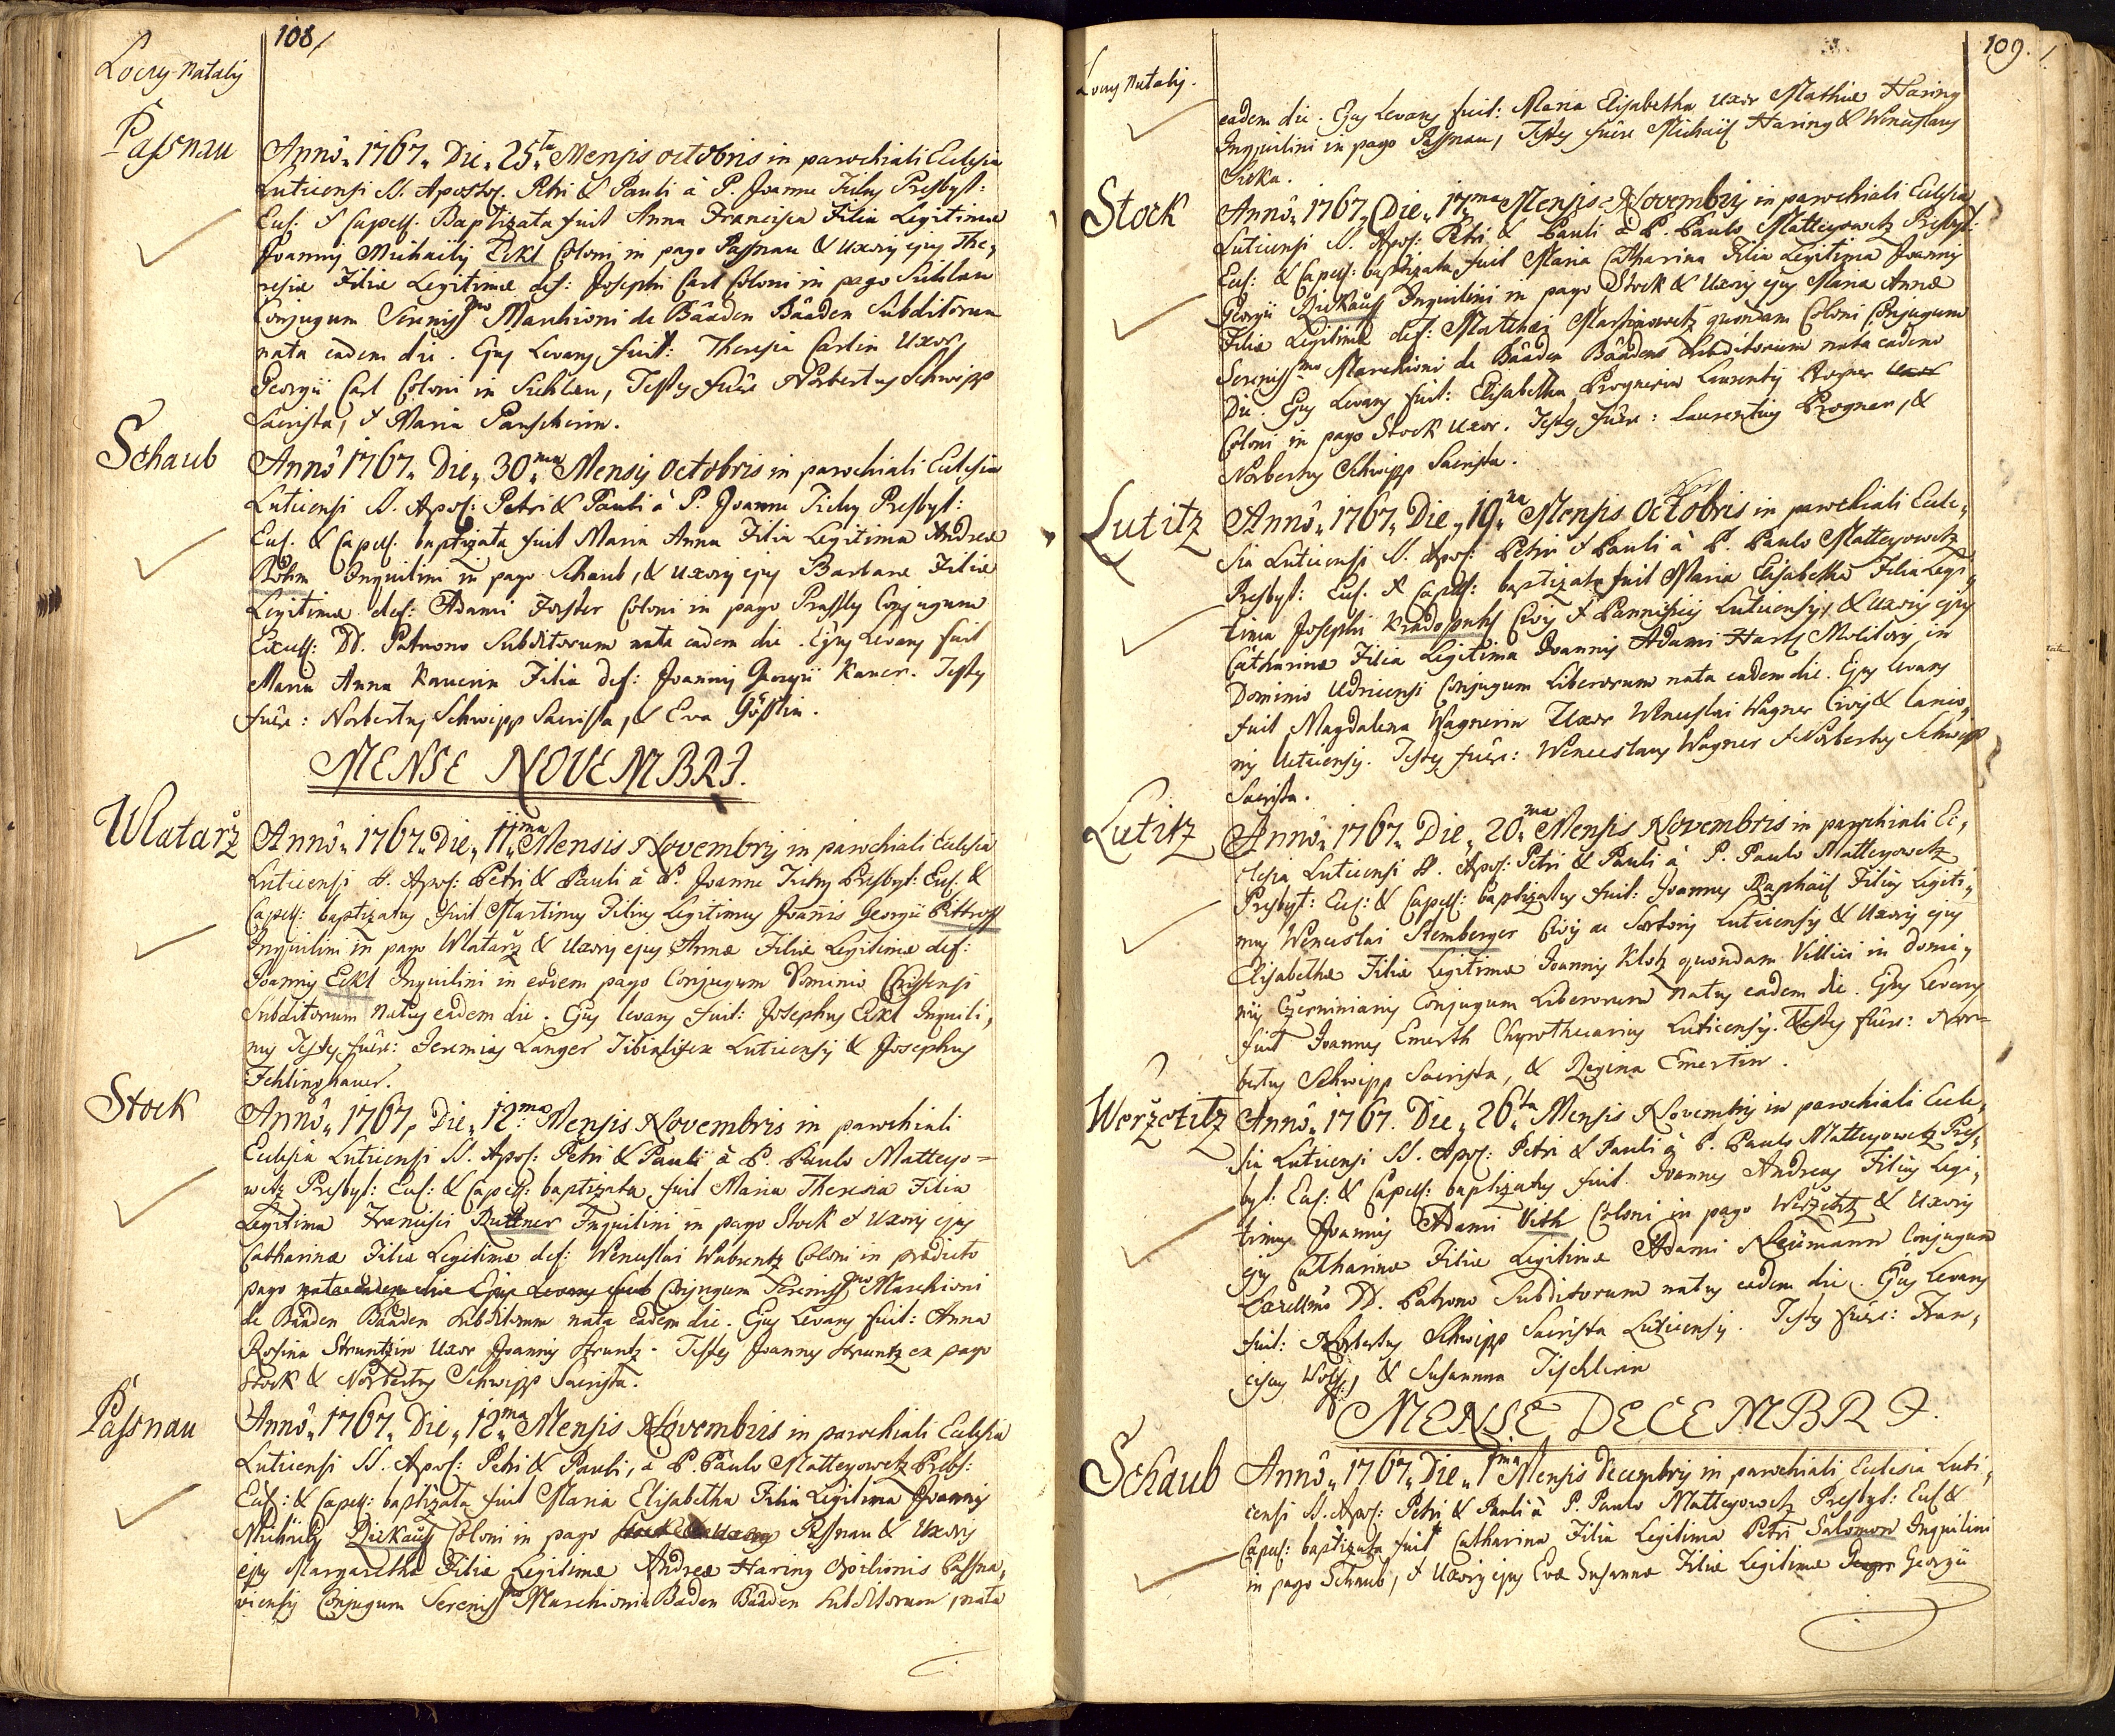 108/
Locus Natalis
Passnau
Anno 1767 Die 25ta Mensis octobris in parochiali Ecclesia
Luticensi SS. Apostol. Petri & Pauli à P. Joanne Tichy Presbyt:
Ecl: & Capell: Baptizata fuit Anna Francisca Filia Legitima
Joannis Michaelis Eckl Coloni in pago Passnau & Uxoris ejus The,
resiæ Filiæ Legitimæ def: Josephi Carl Coloni in pago
Conjugum Sereniss mo Marchioni de Bäaden Bäaden Subditorum
nata eadem die. Ejus Levans fuit: Theresia Carlin Uxor
Georgii Carl Coloni in , Testes fuêre Norbertus Schwipp
Sacrista, & Maria
Schaub
Anno 1767 Die 30ma Mensis Octobris in parochiali Ecclesia
Luticensi SS. Apos: Petri & Pauli à P. Joanne Tichy Presbyt:
Ecl. & Capell. baptizata fuit Maria Anna Filia Legitima Andreæ
Böhm Inquilini in pago Schaub, & Uxoris ejus Barbaræ Filiæ
Legitimæ def: Adami Forster Coloni in pago Conjugum
Excell: DD. Patrono Subditorum nata eadem die. Ejus Levans fuit
Maria Anna Kauerin Filia def: Joannis Georgii Kauer. Testes
fuêre: Norbertus Schwipp Sacrista, & Eva
MENSE NOVEMBRI.
Wlatařz
Anno 1767 Die 11ma Mensis Novembris in parochiali Ecclesia
Luticensi SS. Apos: Petri & Pauli à P. Joanne Tichy Presbyt: Ecl. &
Capell: baptizatus fuit Martinus Filius Legitimus Joannis Georgii Pittroff
Inquilini in pago Wlatařz & Uxoris ejus Annæ Filiæ Legitimæ def:
Joannis Eckl Inquilini in eodem pago Conjugum Dominio Chiesensi
Subditorum Natus eadem die. Ejus levans fuit: Josephus Eckl Inquili,
nus Testes fuêre: Jeremias Langer Tibialifex Luticensis & Josephus
Fehlinghauer.
Stock
Anno 1767 Die 12ma Mensis Novembris in parochiali
Ecclesia Luticensi SS. Apos: Petri & Pauli à P. Paulo Matteyo=
wetz Presbyt: Ecl: & Capell: baptizata fuit Maria Theresia Filia
Legitima Francisci Ruttner Inquilini in pago Stock & Uxoris ejus
Catharinæ Filiæ Legitimæ def: Wenceslai Wabrentz Coloni in prædicto
pago nata eadem die Ejus Levans fuit Conjugum Sereniss mo Marchioni
de Bäaden Bäaden Subditorum nata eadem die. Ejus Levans fuit: Anna
Rosina Struntzin Uxor Joannis Struntz. Testes Joannes Struntz ex pago
Stock & Norbertus Schwipp Sacrista.
Passnau
Anno 1767 Die 12ma Mensis Novembris in parochiali Ecclesia
Luticensi SS. Apos: Petri & Pauli, à P. Paulo Matteyowetz Presb:
Ecl: & Capell: baptizata fuit Maria Elisabetha Filia Legitima Joannis
Michaelis Zickauss Coloni in pago Passnau & Uxoris
ejus Margarethæ Filiæ Legitimæ Andreæ Haring Opilionis Passna,
viensis Conjugum Sereniss mo Marchioni Baden Bäaden Subditorum, nata
109./
Locus Natalis.
eadem die. Ejus Levans fuit: Maria Elisabetha Uxor Mathiæ Haring
Inquilini in pago Passnau, Testes fuêre Michael Haring & Wenceslaus
Sicka.
Stock
Anno 1767 Die 17ma Mensis Novembris in parochiali Ecclesia
Luticensi SS. Apos: Petri & Pauli à P. Paulo Matteyowetz Presbyt:
Ecl: & Capell: baptizata fuit Maria Catharina Filia Legitima Joannis
Georgii Zickauss Inquilini in pago Stock & Uxoris ejus Mariæ Annæ
Filiæ Legitimæ def: Mathæi Martinowetz quondam Coloni Conjugum
Sereniss mo Marchioni de Bäaden Bäadens Subditorum nata eadem
Die. Ejus Levans fuit: Elisabetha Prognerin Laurentii Progner Uxor
Coloni in pago Stock Uxor. Testes fuêre: Laurentius Progner, &
Norbertus Schwipp Sacrista.
Lutitz
Anno 1767 Die 19na Mensis Octobris in parochiali Eccle,
sia Luticensi SS. Apos: Petri & Pauli à P. Paulo Matteyowetz
Presbyt: Ecl. & Capell: baptizata fuit Maria Elisabetha Filia Legi,
tima Josephi Civis & Pannificis Luticensis, & Uxoris ejus
Catharinæ Filia Legitima Joannis Adami Hartl Molitoris in
Dominio Udricensi Conjugum Liberorum nata eadem die. Ejus levans
fuit Magdalena Wagnerin Uxor Wenceslai Wagner Civis & Lanio,
nis Luticensis. Testes fuêre: Wenceslaus Wagner & Norbertus Schwipp
Sacrista.
Lutitz
Anno 1767 Die 20ma Mensis Novembris in parochiali Ec,
clesia Luticensi SS. Apos: Petri & Pauli à P. Paulo Matteyowetz
Presbyt: Ecl: & Capell: baptizatus fuit: Joannes Raphael Filius Legiti,
mus Wenceslai Stemberger Civis ac Sartoris Luticensis & Uxoris ejus
Elisabethæ Filiæ Legitimæ Joannis Klotz quondam Villici in Domi,
niis Czerninianis Conjugum Liberorum Natus eadem die. Ejus Levans
fuit Joannes Emerth Chyrothecarius Luticensis. Testes fuêre: Nor=
bertus Schwipp Sacrista, & Regina Emertin.
Weržetitz
Anno 1767. Die 26ta Mensis Novembris in parochiali Eccle,
sia Luticensi SS. Apos: Petri & Pauli à P. Paulo Matteyowetz Pres,
byt: Ecl: & Capell: baptizatus fuit Joannes Andreas Filius Legi,
timus Joannis Adami Veth Coloni in pago Weržetitz & Uxoris
ejus Catharinæ Filiæ Legitimæ Adami Neümann Conjugum
Excellmo DD. Patrono Subditorum natus eadem die. Ejus Levans
fuit: Norbertus Schwipp Sacrista Luticensis. Testes fuêre: Fran,
ciscus Wolf, & Susanna Tischlerin
MENSE DECEMBRI.
Schaub
Anno 1767 Die 1ma Mensis Decembris in parochiali Ecclesia Luti,
censi SS. Apos: Petri & Pauli à P. Paulo Matteyowetz Presbyt: Ecl &
Capell: baptizata fuit Catharina Filia Legitima Petri Salomon Inquilini
in pago Schaub, & Uxoris ejus Evæ Susannæ Filiæ Legitimæ Georgii